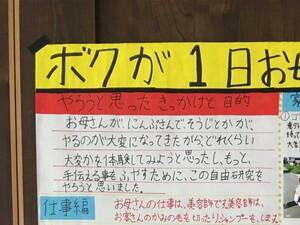 ボクが1日お
やろうと思ったきっかけと目的
お母さんが、にんぷさんで、そうじとかが
ヤるのが大変になってきたがらどれくらい
大変かを体験してみようと思ったし、もっと、
手伝える事をふやすために、この自由研究を
やろうと思いました。
仕事編
お母さんの仕事は、美容師です美容師は、
お客さんのかみの毛を切ったりシャンプーも、